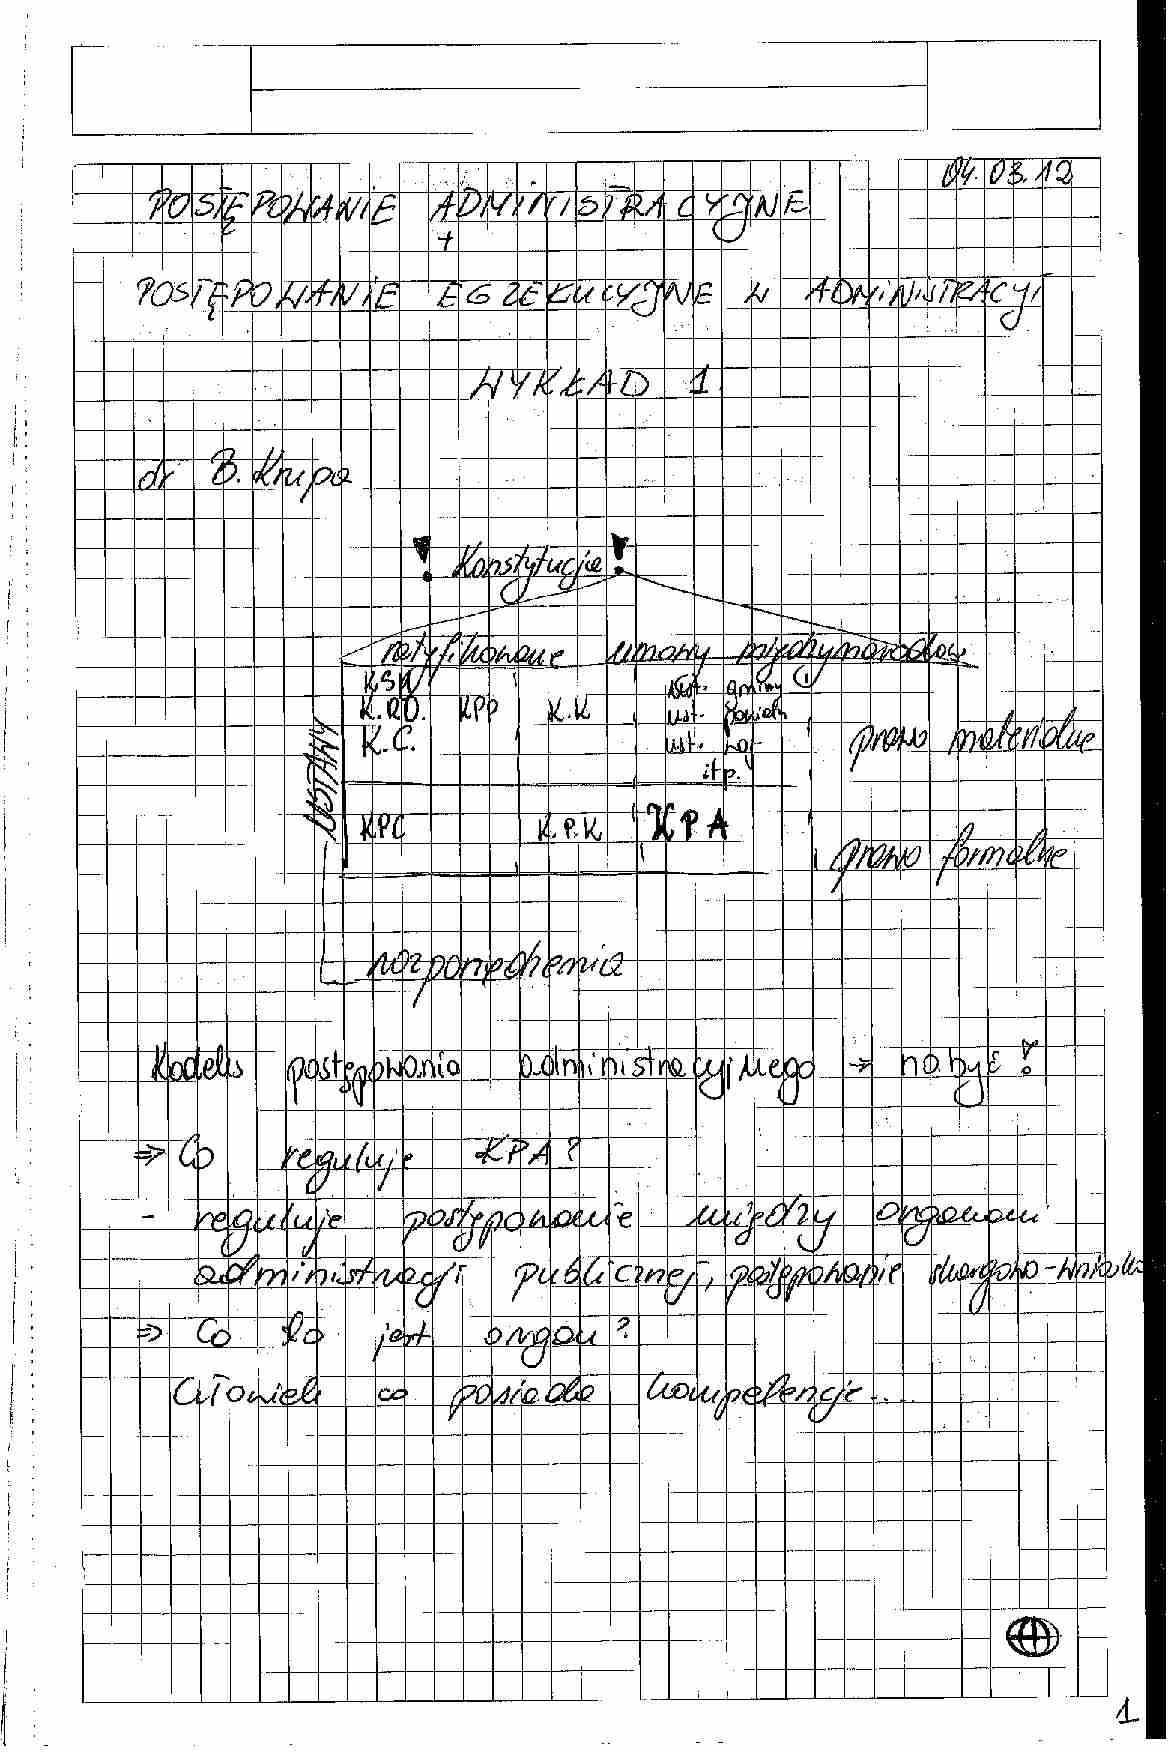 04.03.12
POSTĘPOWANIE ADMINISTRACYJNE
+
POSTĘPOWANIE EGZEKUCYJNE W ADMINISTRACYI
WYKŁAD 1
dr B. Krupa
! Konstytucja !
ratyfikowane umowy międzynarodow
KSH ust. gminy 1
K.RO. KPP K.K ust. powiatu
K.C. ust. woj. prawo materialne
itp.
USTAWY
KPC K.P.K KPA
prawo formalne
rozporządzenia
Kodeks postępowania administracyjnego → nabyć !
⇒ Co reguluje KPA?
- reguluje postępowanie między organami
administracji publicznej, postępowanie skargowo-wniosko
⇒ Co to jest organ?
Człowiek co posiada kompetencje....
1